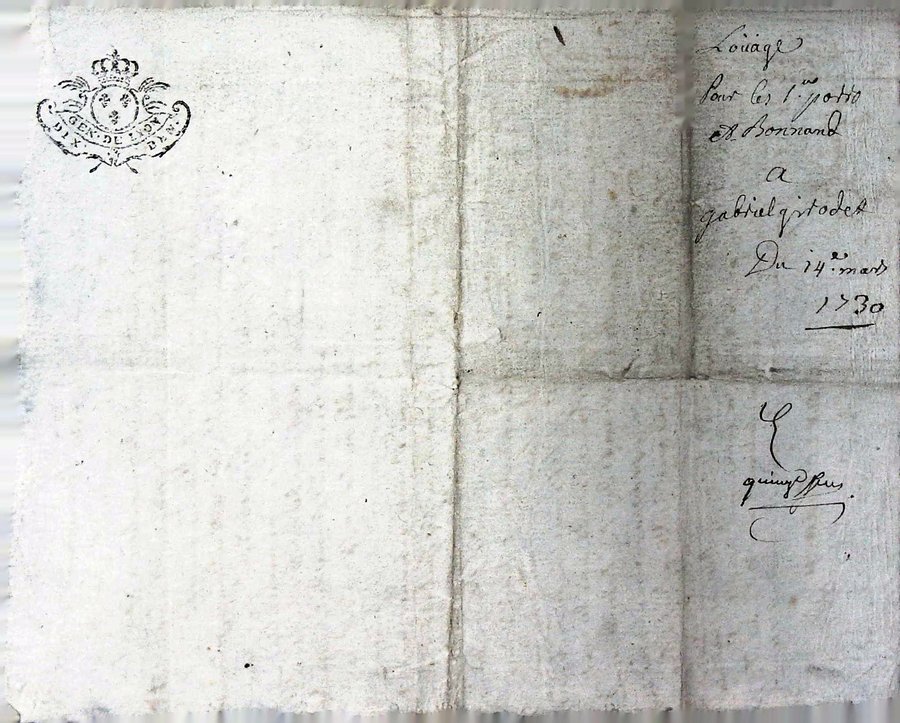 GEN. DE LION
DIX. DEN.
Loüage
Pour les s.rs porro
et Bonnand
a
gabriel girodet
Du 14.e mars
1730